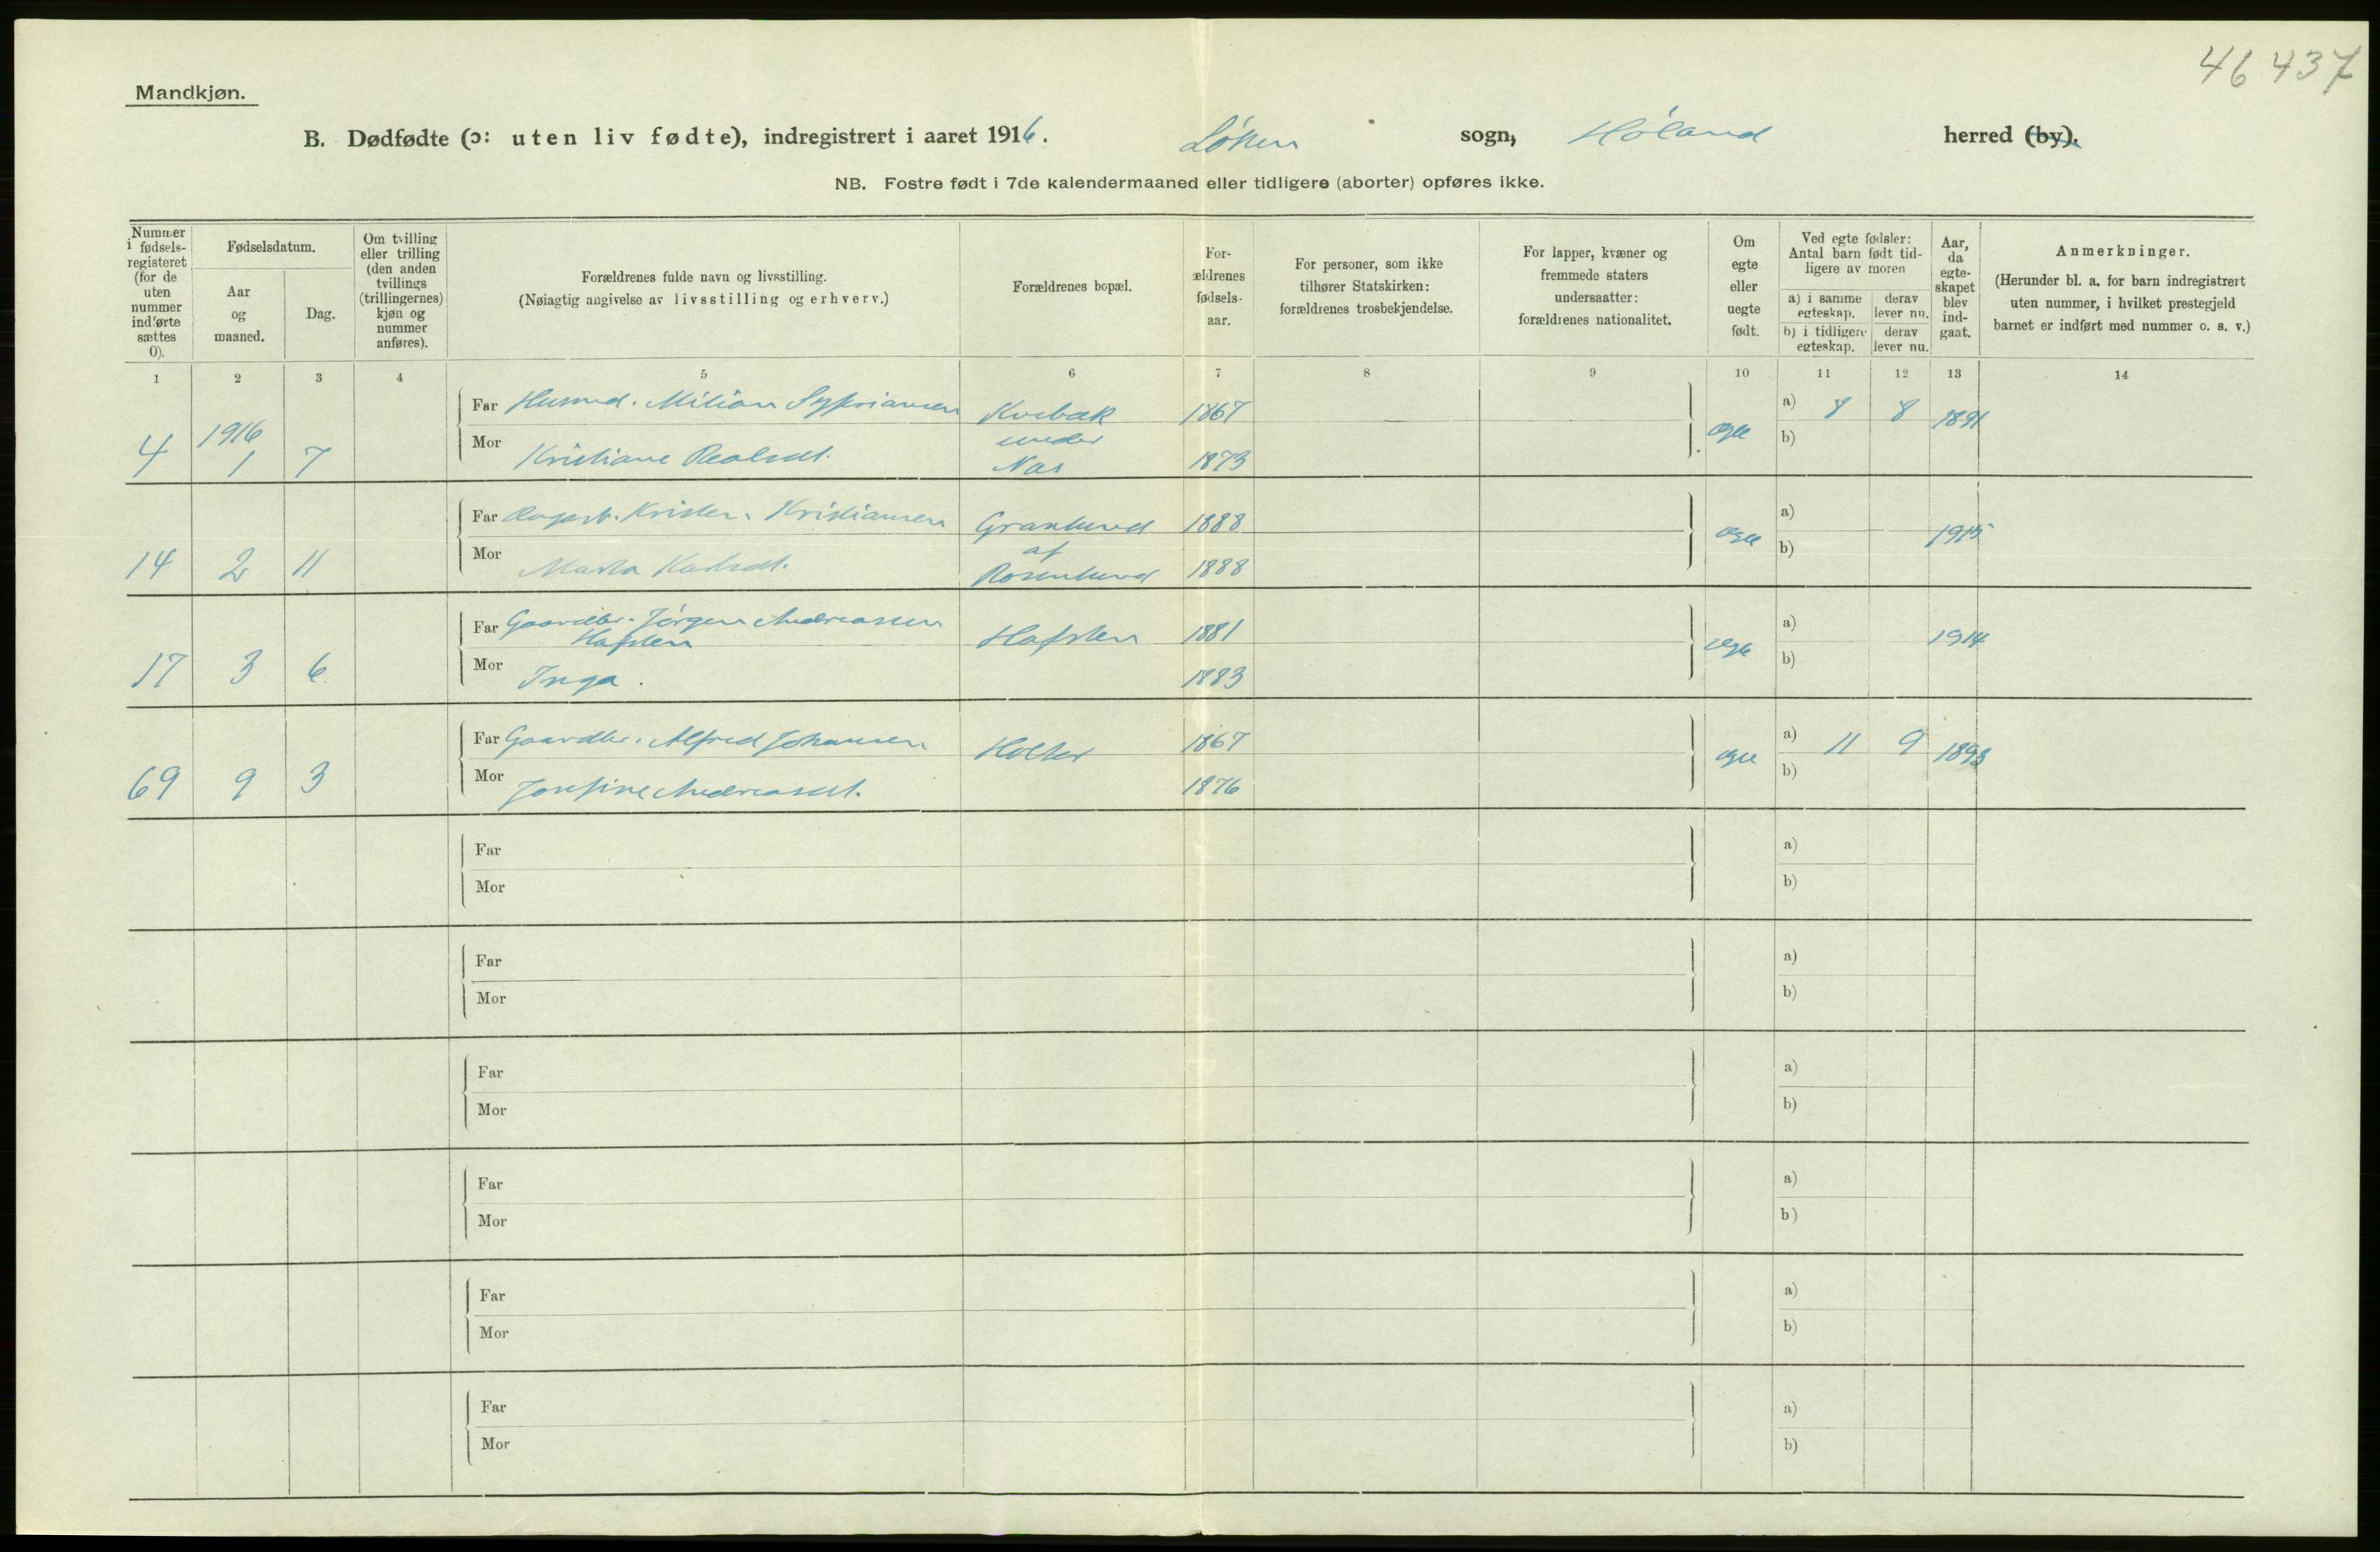 46 437
Mandkjøn.
B. Dødfødte (ɔ: uten liv fødte), indregistrert i aaret 1916. Löken sogn, Höland herred (by).
NB. Fostre født i 7de kalendermaaned eller tidligere (aborter) opføres ikke.
Nummer i fødselsregisteret (for de uten nummer indførte sættes 0).
Fødselsdatum.
Aar og maaned.
Dag.
Om tvilling eller trilling (den anden tvillings (trillingernes) kjøn og nummer anføres).
Forældrenes fulde navn og livsstilling.
(Nøiagtig angivelse av livsstilling og erhverv.)
Forældrenes bopæl.
Forældrenes fødselsaar.
For personer, som ikke tilhører Statskirken: forældrenes trosbekjendelse.
For lapper, kvæner og fremmede staters undersaatter: forældrenes nationalitet.
Om egte eller uegte født.
Ved egte fødsler: Antal barn født tidligere av moren
a) i samme egteskap.
derav lever nu.
b) i tidligere egteskap.
derav lever nu.
Aar, da egteskapet blev indgaat.
Anmerkninger.
(Herunder bl. a. for barn indregistrert uten nummer, i hvilket prestegjeld barnet er indført med nummer o. s. v.)
1 2 3 4 5 6 7 8 9 10 11 12 13 14
Far Husmd. Milian Sypriansen Kvebæk 1867 a) 8 8 1891
4 1916 1 7 Mor Kristiane under Nas 1873 egte b)
Far Kristen Kristiansen Granlund 1888 a) 1915
14 2 11 Mor Marta Karlsdt. af Rosenlund 1888 egte b)
Far Gaardbr. Jörgen Andreassen Hafsten Hafsten 1881 a) 1914
17 3 6 Mor Inga. 1883 egte b)
Far Gaardbr. Alfred Johansen Holter 1867 a) 11 9 1893
69 9 3 Mor Josefine Andreasdt. 1876 egte b)
Far a)
Mor b)
Far a)
Mor b)
Far a)
Mor b)
Far a)
Mor b)
Far a)
Mor b)
Far a)
Mor b)